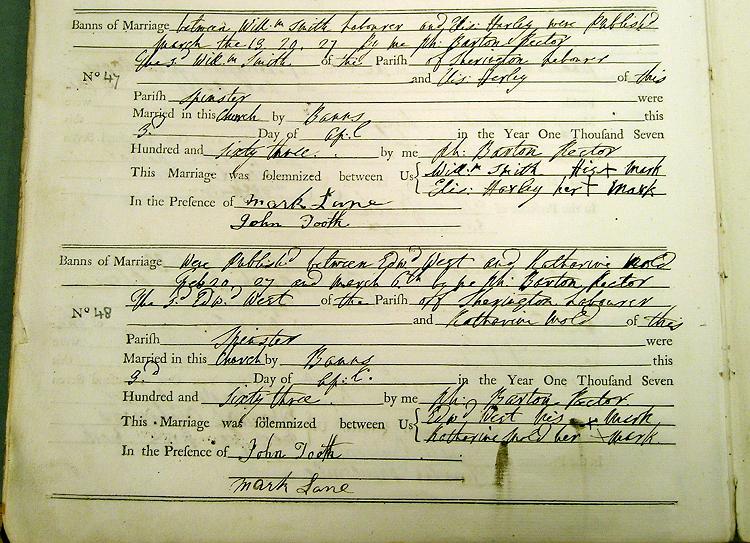 Banns of Marriage between Will:m Smith Labourer and Elis: Harley were Publish'd
March the 13, 20, 27 by me Ph: Barton Rector
The s.d Will:m Smith of the Parish of Sherington Labourer
No 47 and Elis: Harley of this
Parish Spinster were
Married in this Church by Banns this
3.d Day of Ap:l in the Year One Thousand Seven
Hundred and sixty three. by me Ph: Barton Rector
This Marriage was solemnized between Us Will:m Smith His + mark
Elis: Harley her + mark
In the Presence of Mark Lane
John Tooth
Banns of Marriage Were Publish'd between Edw'd West and Katharine Mold
Feb 20, 27 and March 6th by me Ph: Barton Rector
The s.d Edw.d West of the Parish off Sherington Labourer
No 48 and Katharine Mold of this
Parish Spinster were
Married in this Church by Banns this
3.d Day of Ap:l. in the Year One Thousand Seven
Hundred and sixty three. by me Ph: Barton Rector
This Marriage was solemnized between Us Edw'd West his + mark
Katharine Mold her + mark
In the Presence of John Tooth
Mark Lane